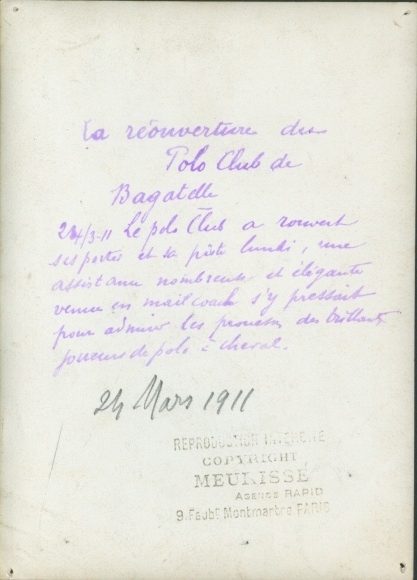 La réouverture du
Polo Club de
Bagatelle
24/3-11 Le polo Club a rouvert
ses portes et sa piste lundi, une
assistance nombreuse et élégante
venue en mail coach s'y pressait
pour admirer les prouesses des brillants
joueurs de polo à cheval.
24 Mars 1911
REPRODUCTION INTERDITE
COPYRIGHT
MEURISSE
AGENCE RAPID
9. Faubg Montmartre PARIS